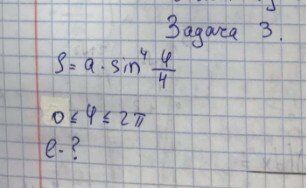 Задача 3.
ρ = a · sin⁴ φ/4
0 ≤ φ ≤ 2π
l - ?